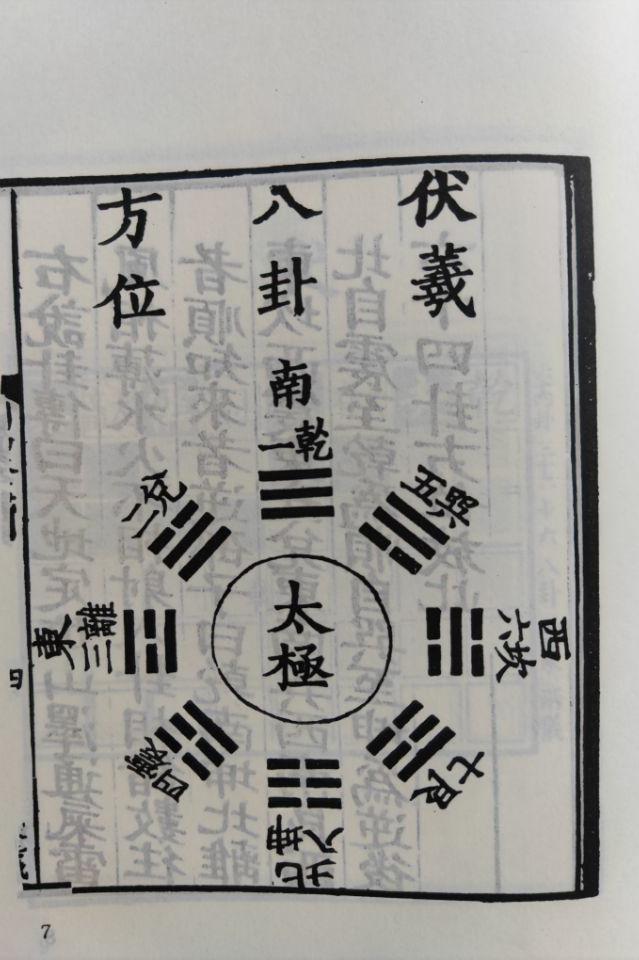 伏羲
八卦
方位
南
乾一
兌二
離三
東
震四
巽五
坎六
西
艮七
坤八
北
太極
四
7